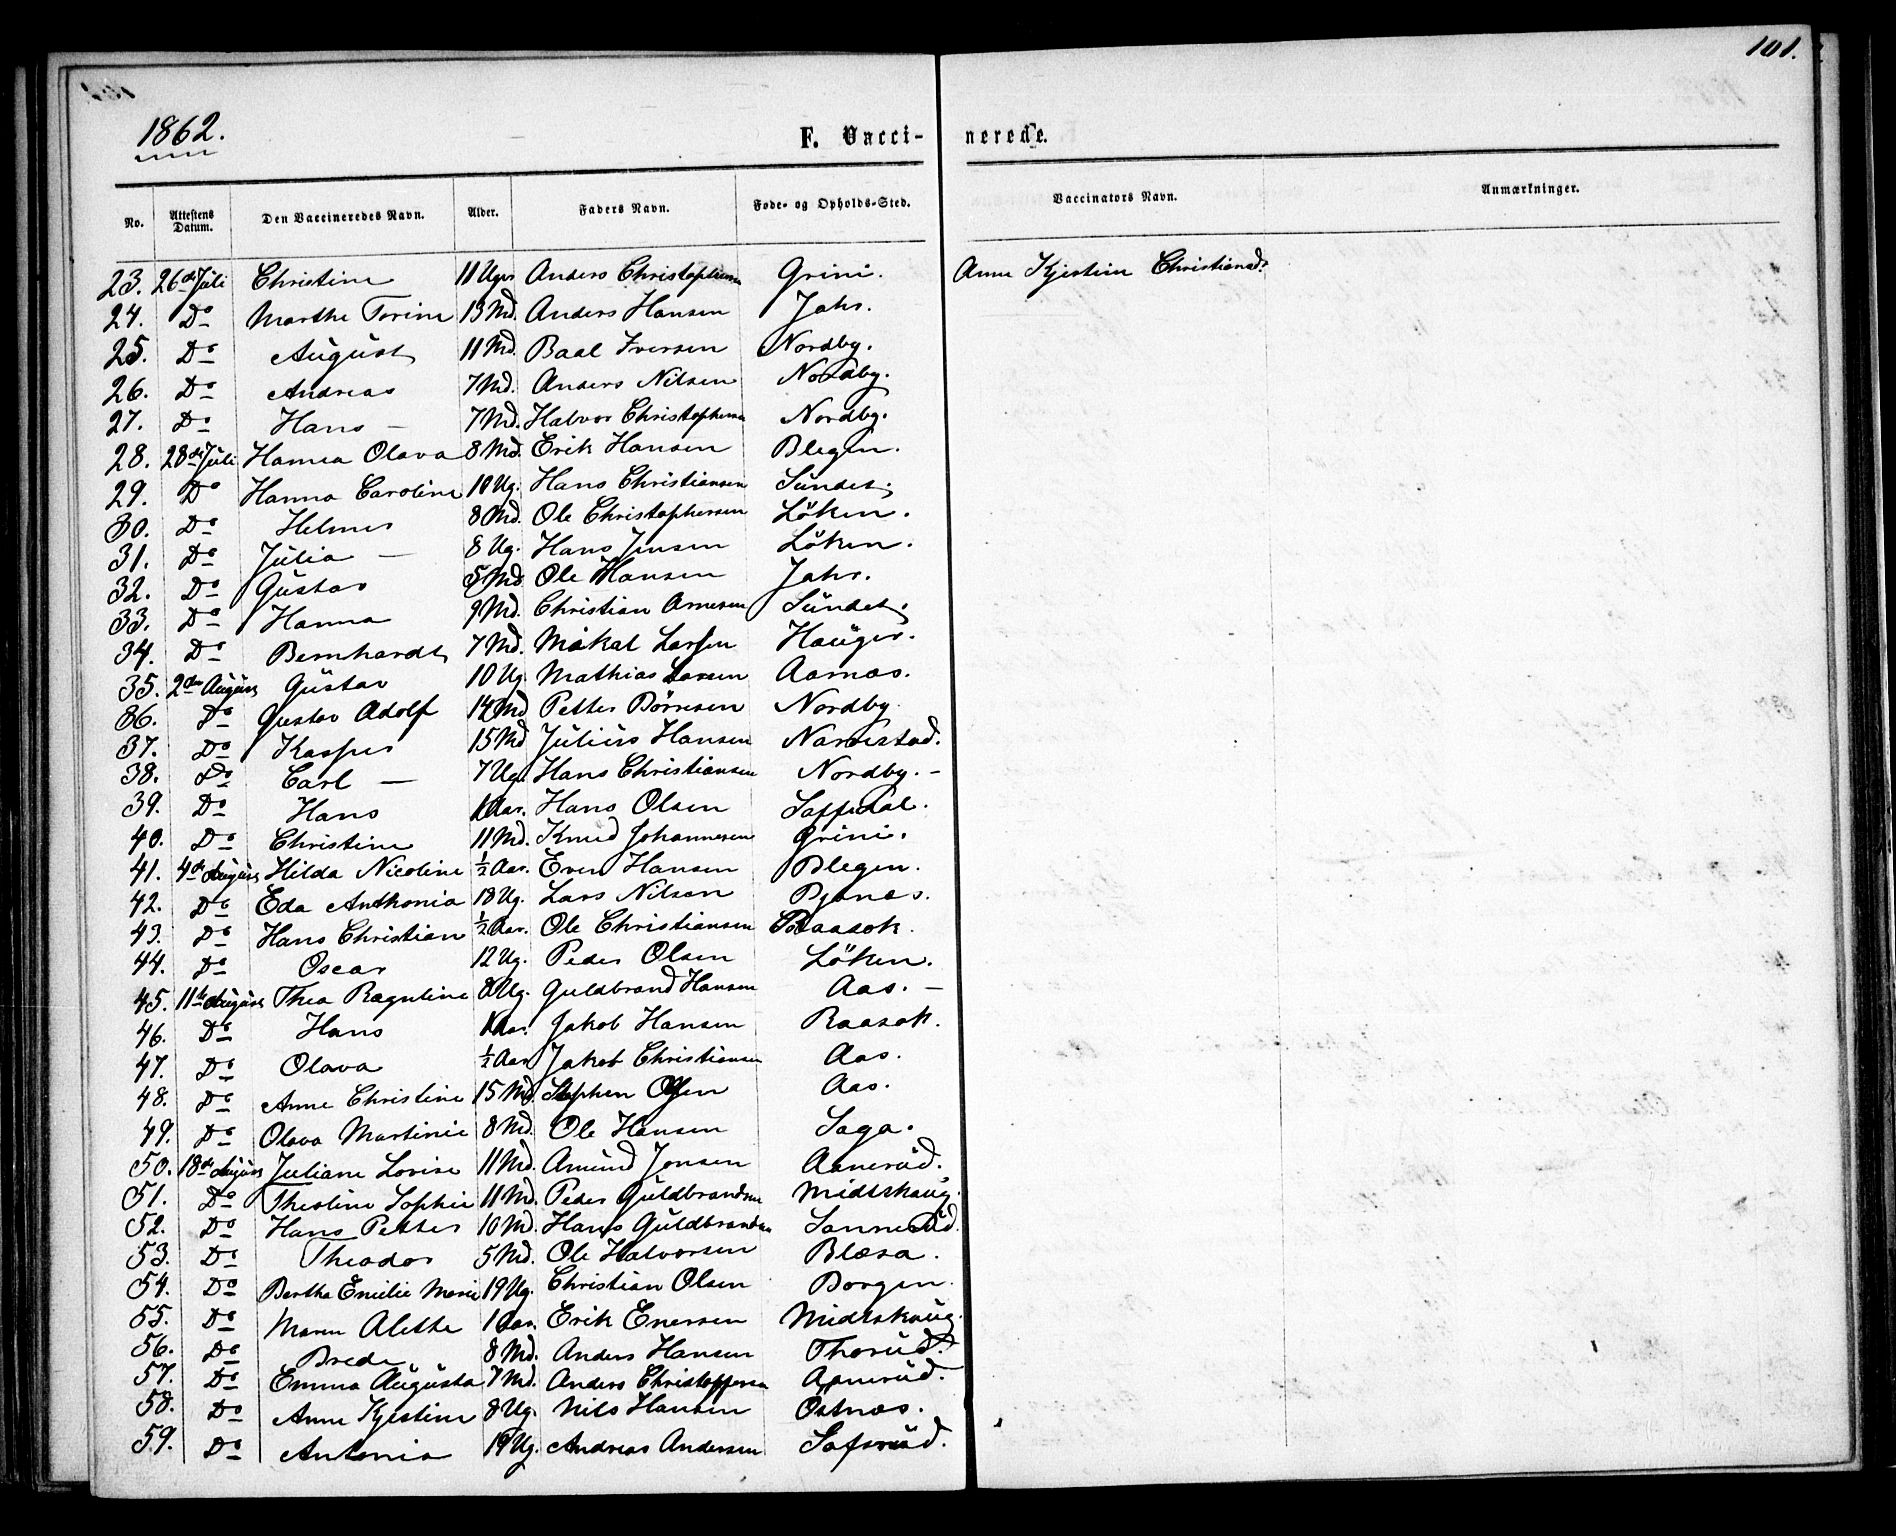 101.
1862.
F. Vaccinerede.
No. Attestens Datum. Den Vaccineredes Navn. Alder. Faders Navn. Føde- og Opholds-Sted. Vaccinators Navn. Anmærkninger.
23. 26de Juli Christine 11 Uger Anders Christophersen Grini. Anne Kjerstine Christiansd:
24. Do Marthe Torine 13 Md. Anders Hansen Jahr.
25. Do August 11 Md. Paal Iversen Nordby.
26. Do Andreas 7 Md. Anders Nilsen Nordby.
27. Do Hans – 7 Md. Halvor Christophersen Nordby.
28. 28de Juli Hanna Olava 8 Md. Erik Hansen Blegen.
29. Do Hanna Caroline 10 Ug. Hans Christiansen Sundet.
30. Do Helmer 8 Md. Ole Christophersen Löken.
31. Do Julia – 8 Ug. Hans Jensen Löken.
32. Do Gustav 5 Md. Ole Hansen Jahr.
33. Do Hanna 9 Md. Christian Arnesen Sundet.
34. Do Bernhardt 7 Md. Mikal Larsen Hauger.
35. 2den August Gustav 10 Ug. Mathias Larsen Aarnæs.
36. Do Gustav Adolf 14 Md Petter Börresen Nordby.
37. Do Kasper 15 Md Julius Hansen Narvestad.
38. Do Carl – 7 Ug. Hans Christiansen Nordby. –
39. Do Hans 1 Aar. Hans Olsen
40. Do Christine 11 Md. Knud Johannesen Grini.
41. 4de August Hilda Nicoline ½ Aar. Even Hansen Blegen.
42. Do Eda Anthonia 18 Ug. Lars Nilsen
43. Do Hans Christian ½ Aar. Ole Christiansen Raasok.
44. Do Oscar 12 Ug. Peder Olsen Löken.
45. 11te August Thea Ragnline 8 Ug. Guldbrand Hansen Aas. –
46. Do Hans 1 Aar. Jakob Hansen Raasok.
47. Do Olava ½ Aar Jakob Christiansen Aas.
48. Do Anne Christine 15 Md. Stephen Olsen Aas.
49. Do Olava Martinie 8 Md. Ole Hansen Saga.
50. 18de August Juliane Lovise 11 Md. Amund Jonsen Aanerud.
51. Do Thestine Sophie 11 Md. Peder Guldbrandsen Midtskaug.
52. Do Hans Petter 10 Md. Hans Guldbrandsen Sannerud.
53. Do Theodor 5 Md. Ole Halvorsen Blæsa.
54. Do Berthe Emilie Marie 19 Ug. Christian Olsen Borgen.
55. Do Maren Alette 1 Aar. Erik Enersen Midtskaug.
56. Do Brede 8 Md. Anders Hansen Thorud.
57. Do Emma Augusta 7 Md. Anders Christoffersen Aanerud.
58. Do Anne Kjestine 8 Ug. Nils Hansen Ostnæs.
59. Do Antonia 19 Ug. Andreas Andersen Lofsrud.